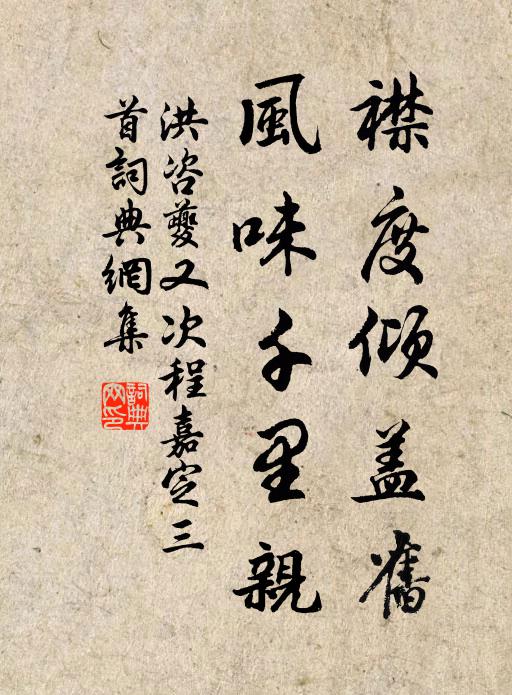 襟度傾盖舊
風味千里親
洪咨夔又次程嘉定三
首詞典網集
詞典
网印